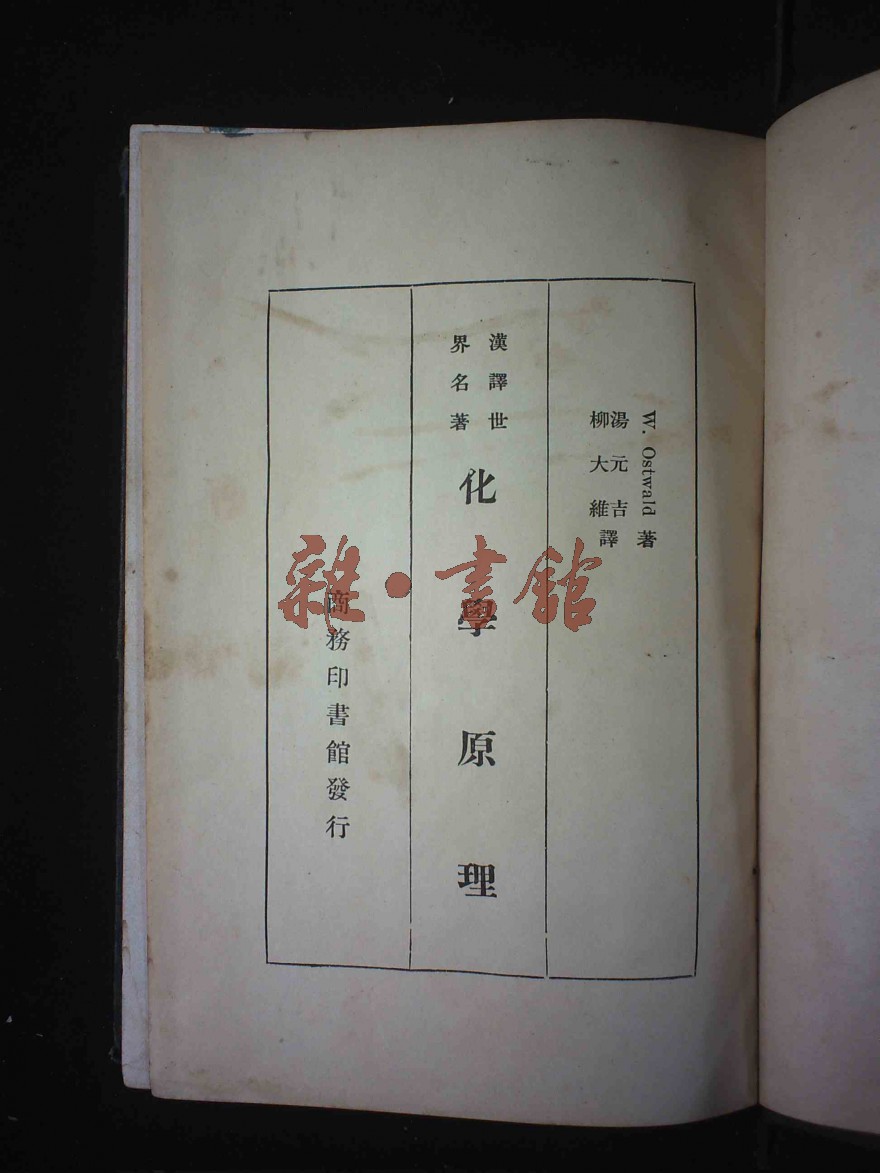 W. Ostwald 著
湯元吉
柳大維
譯
漢譯世
界名著
化學原理
商務印書館發行
雜·書館